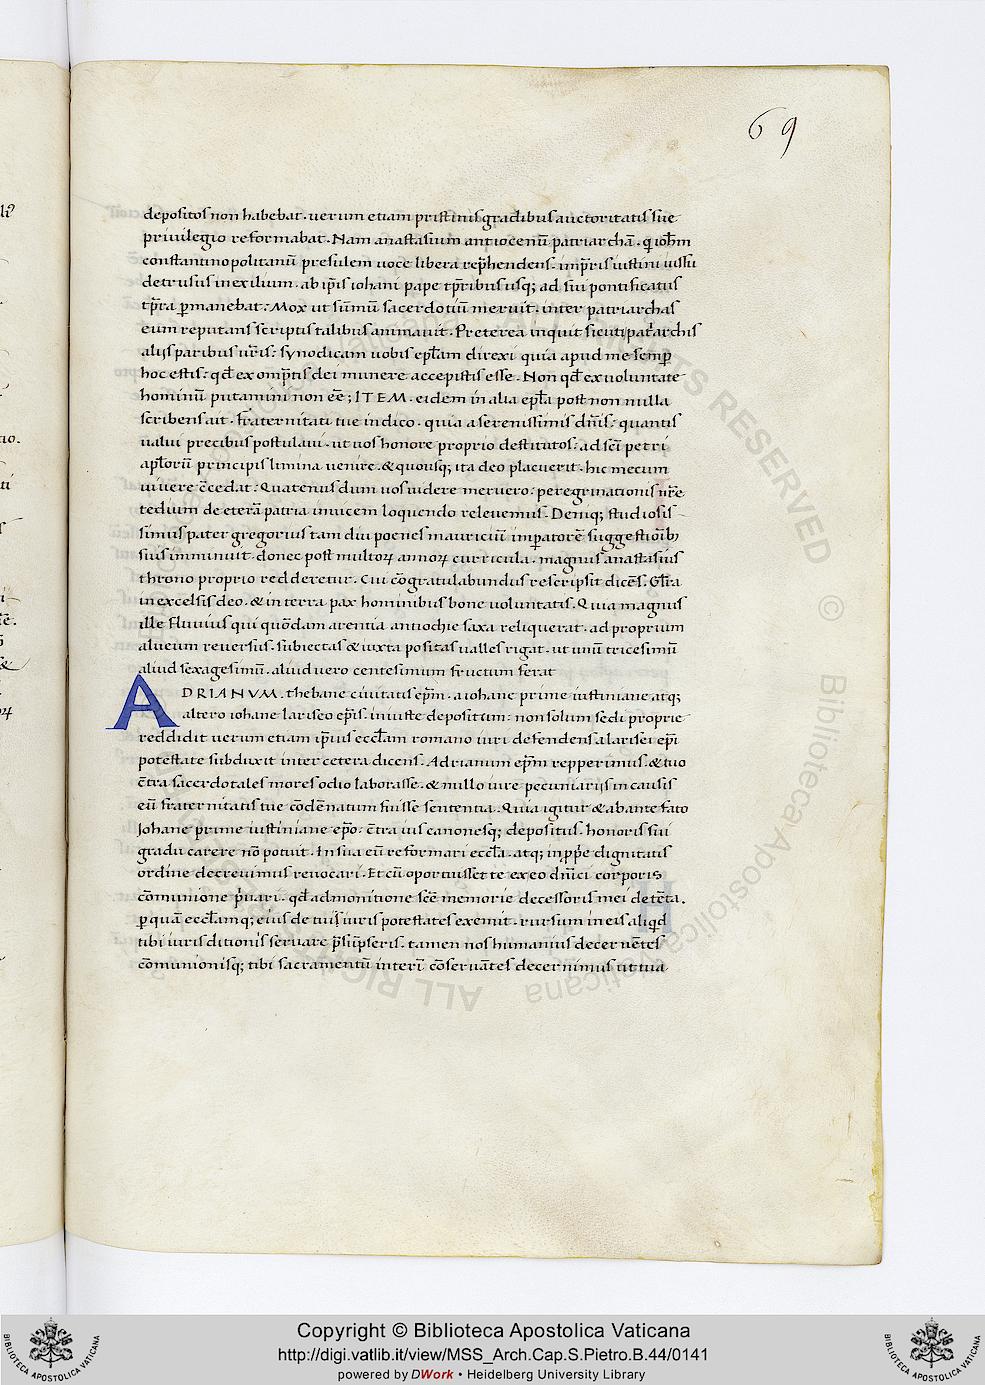 69
depositos non habebat. uerum etiam pristinis gradibus auctoritatis sue
priuilegio reformabat. Nam anastasium antiocenū patriarchā. qͥ ioħm
constantinopolitanū presulem uoce libera rep̄hendens. imp̄ris iustini iussu
detrusus in exilium. ab ip̄is iohani pape tp̄ribus usq; ad sui pontificatus
tp̄ra ꝑmanebat. Mox ut sūmū sacerdotiū meruit. inter patriarchas
eum reputans scriptis talibus animauit. Preterea inquit sicuti patͬarchis
alijs paribus ūris: synodicam uobis ep̄lam direxi quia apud me semꝑ
hoc estis: qđ ex omp̄tis dei munere accepistis esse. Non qđ ex uoluntate
hominū putamini non eē; ITEM. eidem in alia ep̄la post non nulla
scribens ait. Fraternitati tue indico. quia a serenissimis dn̄is: quantis
ualui precibus postulaui. ut uos honore proprio destitutos: ad sc̄i petri
apl̄orū principis limina uenire. & quousq; ita deo placuerit. hic mecum
uiuere c̄cedat: Quatenus dum uos uidere meruero: peregrinationis ūre
tedium de eterā patria inuicem loquendo releuemus. Deniq; studiosis-
simus pater gregorius tam diu poenes mauriciū imꝑatorē suggestioīb;
suis imminuit. donec post multoꝝ annoꝝ curricula. magnus anastasius
throno proprio redderetur. Cui cōgratulabundus rescripsit dicēs. Gl̄ia
in excelsis deo. & in terra pax hominibus bone uoluntatis. Quia magnus
ille fluuius qui quōdam arentia antiochie saxa reliquerat. ad proprium
alueum reuersus. subiectas & iuxta positas ualles rigat. ut unū tricesimū
aliud sexagesimū. aliud uero centesimum fructum ferat
ADRIANVM. thebane ciuitatis ep̄m. a iohane prime iustiniane atq;
altero iohane lariseo ep̄is. iniuste depositum: non solum sedi proprie
reddidit uerum etiam ip̄ius eccl̄am romano iuri defendens a larisei ep̄i
potestate subduxit inter cetera dicens. Adrianum ep̄m repperimus. & tuo
c̄tra sacerdotales mores odio laborasse. & nullo iure pecuniarijs in causis
eū fraternitatis tue cōdēnatum fuisse sententia. Quia igitur & ab ante fato
Johane prime iustiniane ep̄o. c̄tra ius canonesq; depositus. honoris sui
gradu carere nō potuit. In sua eū reformari eccl̄a. atq; in ꝓpͥe dignitatis
ordine decreuimus reuocari. Et cū oportuisset te ex eo dn̄ici corporis
cōmunione pͥuari. qđ admonitione sc̄e memorie decessoris mei detēta.
ꝑ quā eccl̄amq; eius de tuis iuris potestates exemit. rursum in eis aliqͥd
tibi iurisditionis seruare p̄sūpseris. tamen nos humanius decernētes
cōmunionisq; tibi sacramentū interī cōseruātes decernimus ut tua
ALL RIGHTS RESERVED © Biblioteca Apostolica Vaticana
Copyright © Biblioteca Apostolica Vaticana
http://digi.vatlib.it/view/MSS_Arch.Cap.S.Pietro.B.44/0141
powered by DWork • Heidelberg University Library
BIBLIOTECA APOSTOLICA VATICANA
BIBLIOTECA APOSTOLICA VATICANA